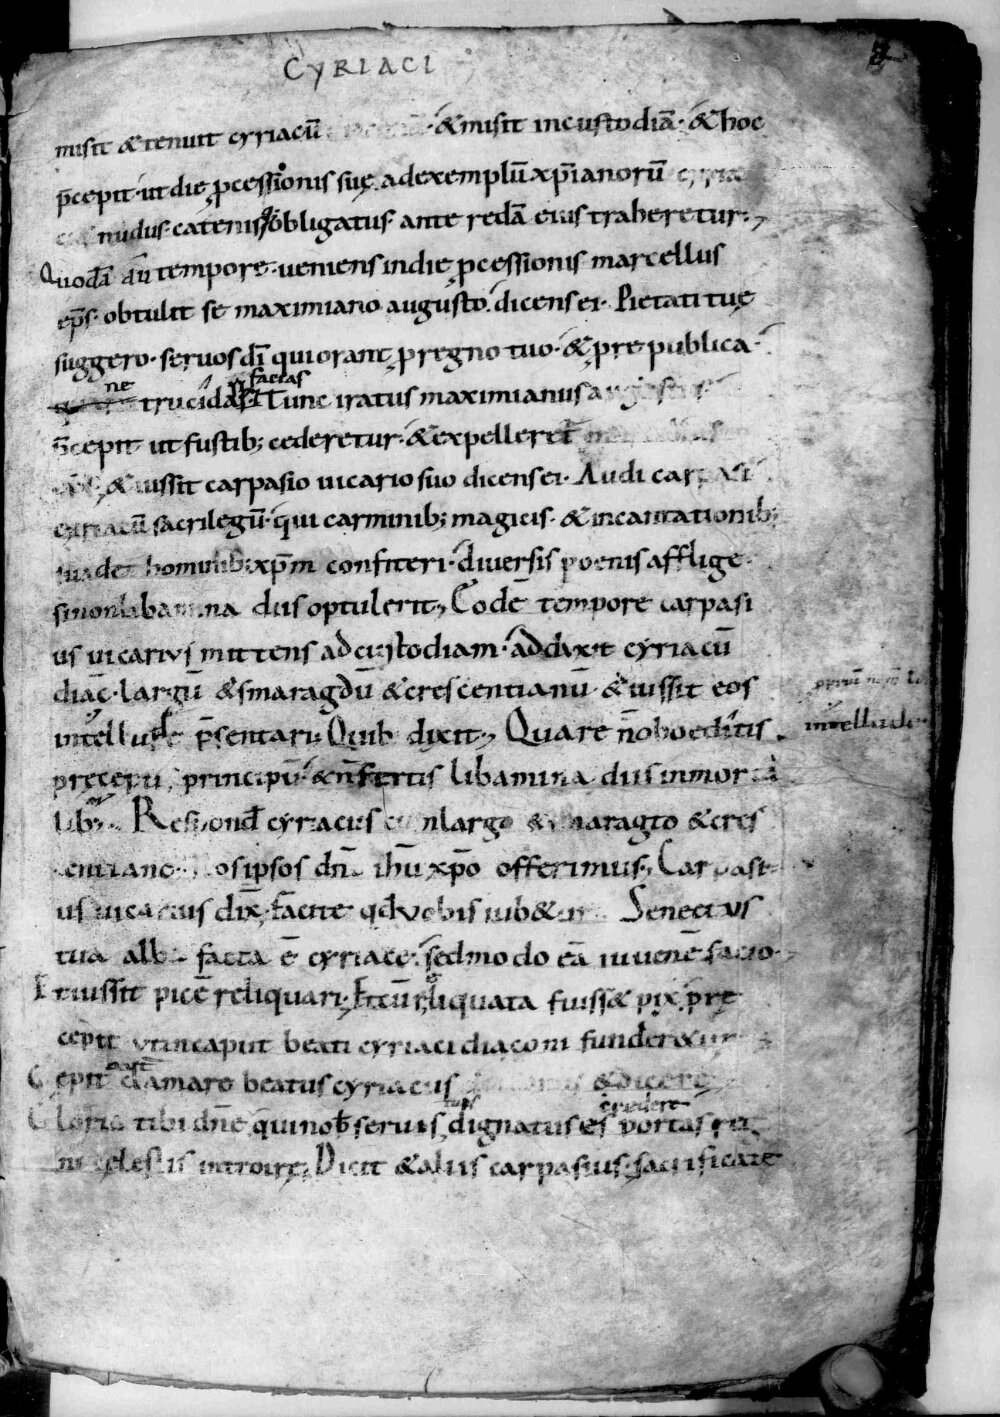 CYRIACI
misit & tenuit cyriacū · & misit incustodiā · & hoc
p̄cepit · ut die ꝓcessionis suę · adexemplū xp̄ianorū
nudus · catenis obligatus · ante redā eius traheretur ·,
Quodā aū tempore · ueniens indie ꝓcessionis marcellus
ep̄s · obtulit se maximiano augusto · dicens ei · Pietati tuę
suggero · seruos dī qui orant ꝓ regno tuo · & ꝓ re publica ·
ne trucidari facias Tunc iratus maximianus
p̄cepit ut fustib; cederetur · & expelleret̄
& iussit carpasio uicario suo dicens ei · Audi carpasi
cyriacū sacrilegū · qui carminib; magicis · & incantationib;
suadet hominib; xp̄m confiteri · diuersis poenis afflige ·
sinon libamina diis optulerit, Eodē tempore carpasi
us uicarius mittens ad custodiam · adduxit cyriacū
diac̄ · largū & smaragdū & crescentianū · & iussit eos
intellude p̄sentari · Quib; dixit ·, Quare n̄ oboeditis
intellude
pręcepti principū · & n̄ fertis libamina diis inmorta
lib; · Respond̄ cyriacus cum largo & smaragto & cres
centiano · Nos ipsos dn̄o ihū xp̄o offerimus ·, Carpasi
us uicarius dix̄ · facite qd̄ uobis iub&ur · Senectus
tua alba facta ē cyriace · sed modo eā iuuenē facio ·
Et iussit picē reliquari · Et cū reliquata fuiss& pix · prę
cepit ut in caput beati cyriaci diaconi funder&ur
Cepit aut̄ clamare beatus cyriacus & dicere
Gloria tibi dn̄e qui nob̄ seruis tuis dignatus es credere portas reg
ni cęlestis introire, Dicit & aliis carpasius · sacrificate